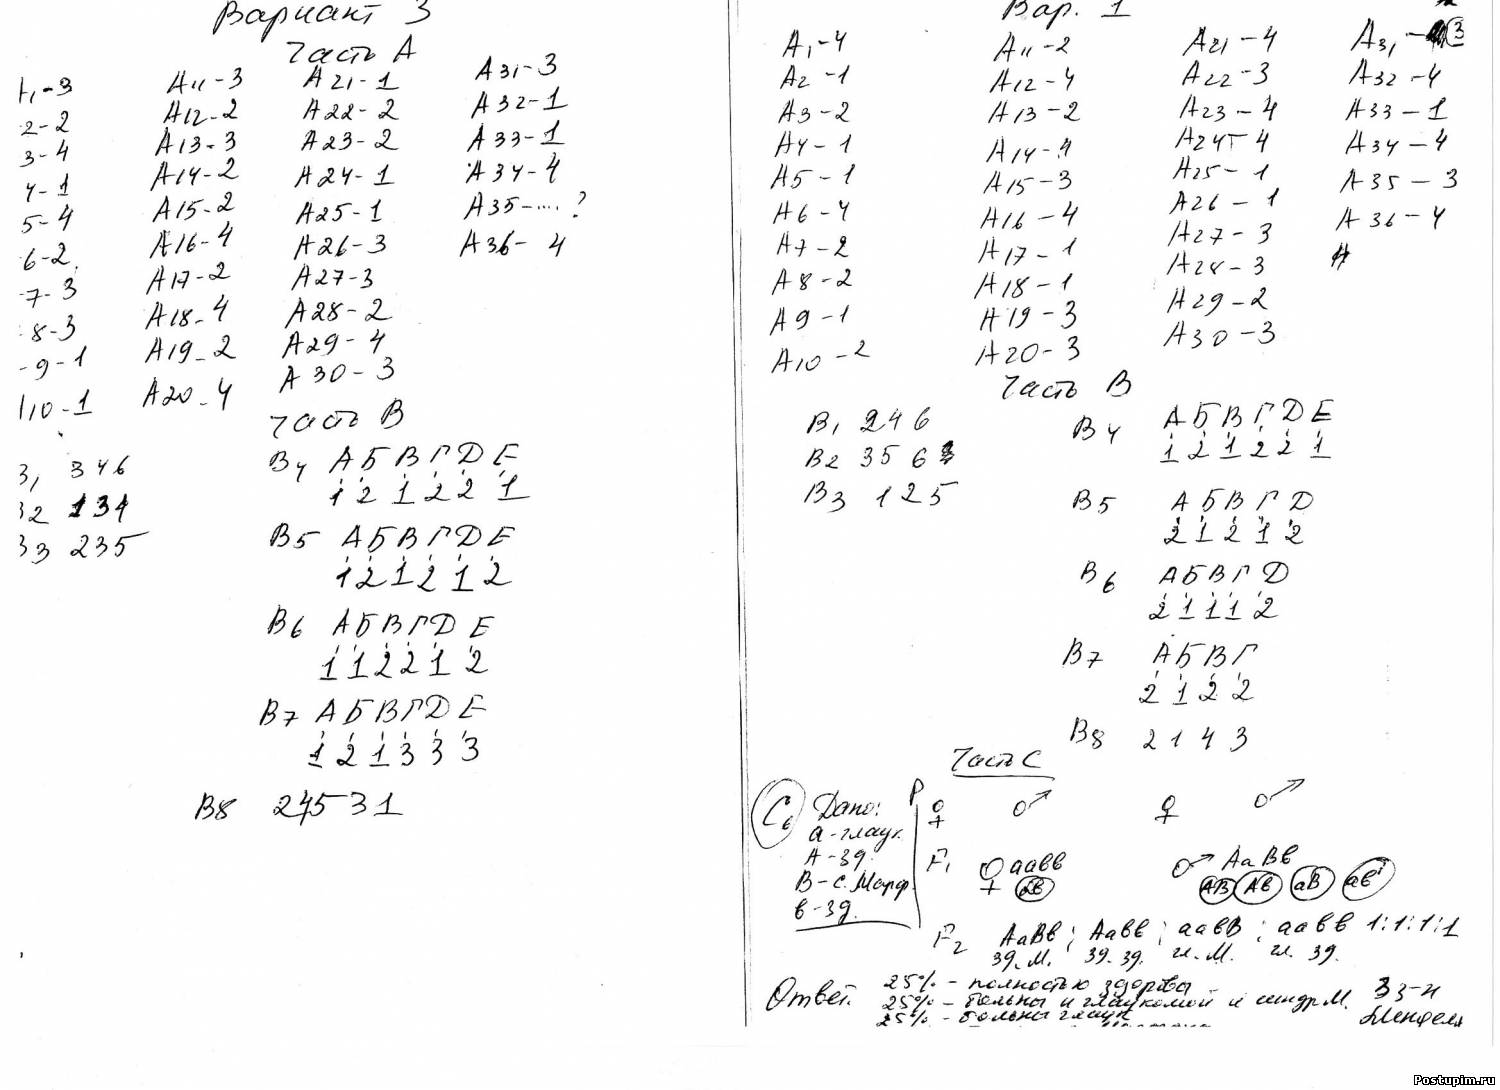 Вариант 3
Часть А
1-3
2-2
3-4
4-1
5-4
6-2
7-3
8-3
9-1
10-1
А11-3
А12-2
А13-3
А14-2
А15-2
А16-4
А17-2
А18-4
А19-2
А20-4
А21-1
А22-2
А23-2
А24-1
А25-1
А26-3
А27-3
А28-2
А29-4
А30-3
А31-3
А32-1
А33-1
А34-4
А35-....?
А36-4
Часть В
В1 346
В2 134
В3 235
В4 А Б В Г Д Е
1 2 1 2 2 1
В5 А Б В Г Д Е
1 2 1 2 1 2
В6 А Б В Г Д Е
1 1 2 2 1 2
В7 А Б В Г Д Е
1 2 1 3 3 3
В8 24531
Вар. 1
А1-4
А2-1
А3-2
А4-1
А5-1
А6-4
А7-2
А8-2
А9-1
А10-2
А11-2
А12-4
А13-2
А14-4
А15-3
А16-4
А17-1
А18-1
А19-3
А20-3
А21-4
А22-3
А23-4
А24-4
А25-1
А26-1
А27-3
А28-3
А29-2
А30-3
А31-3
А32-4
А33-1
А34-4
А35-3
А36-4
Часть В
В1 246
В2 356
В3 125
В4 А Б В Г Д Е
1 2 1 2 2 1
В5 А Б В Г Д
2 1 2 1 2
В6 А Б В Г Д
2 1 1 1 2
В7 А Б В Г
2 1 2 2
В8 2143
Часть С
С6 Дано:
а-глаук.
А-зд.
В-с. Марф.
в-зд.
Р ♀ ♂ ♀ ♂
F1 ♀ аавв ♂ АаВв
ав АВ Ав аВ ав
F2 АаВв; Аавв; аавВ; аавв 1:1:1:1
зд. М. зд. зд. гл. М. гл. зд.
Ответ. 25% - полностью здоровы
25% - больны и глаукомой и синдр М. 3 з-н
25% - больны глаук Менделя
Postupim.ru